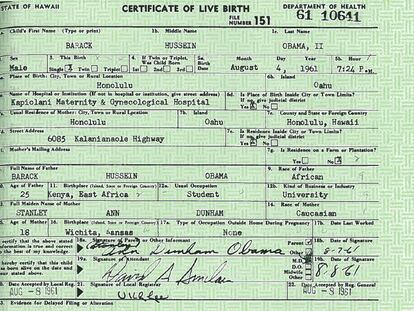 STATE OF HAWAII CERTIFICATE OF LIVE BIRTH DEPARTMENT OF HEALTH
FILE NUMBER 151 61 10641
Child's First Name (Type or print) 1b. Middle Name 1c. Last Name
BARACK HUSSEIN OBAMA, II
Sex 3. This Birth 4. If Twin or Triplet, Was Child Born 5a. Birth Date Month Day Year 5b. Hour
Male Single Twin Triplet 1st 2nd 3rd August 4, 1961 7:24 P.
Place of Birth: City, Town or Rural Location 6b. Island
Honolulu Oahu
Name of Hospital or Institution (If not in hospital or institution, give street address) 6d. Is Place of Birth Inside City or Town Limits? If no, give judicial district
Kapiolani Maternity & Gynecological Hospital Yes No
Usual Residence of Mother: City, Town or Rural Location 7b. Island 7c. County and State or Foreign Country
Honolulu Oahu Honolulu, Hawaii
Street Address 7e. Is Residence Inside City or Town Limits? If no, give judicial district
6085 Kalanianaole Highway Yes No
Mother's Mailing Address 7g. Is Residence on a Farm or Plantation?
Yes No
Full Name of Father 9. Race of Father
BARACK HUSSEIN OBAMA African
Age of Father 11. Birthplace (Island, State or Foreign Country) 12a. Usual Occupation 12b. Kind of Business or Industry
25 Kenya, East Africa Student University
Full Maiden Name of Mother 14. Race of Mother
STANLEY ANN DUNHAM Caucasian
Age of Mother 16. Birthplace (Island, State or Foreign Country) 17a. Type of Occupation Outside Home During Pregnancy 17b. Date Last Worked
18 Wichita, Kansas None
certify that the above stated information is true and correct to the best of my knowledge. 18a. Signature of Parent or Other Informant Parent Other 18b. Date of Signature
Ann Dunham Obama 8-7-61
hereby certify that this child was born alive on the date and hour stated above. 19a. Signature of Attendant M.D. D.O. Midwife Other 19b. Date of Signature
David A Sinclair 8-8-61
Date Accepted by Local Reg. 21. Signature of Local Registrar 22. Date Accepted by Reg. General
AUG -8 1961 AUG -8 1961
Evidence for Delayed Filing or Alteration